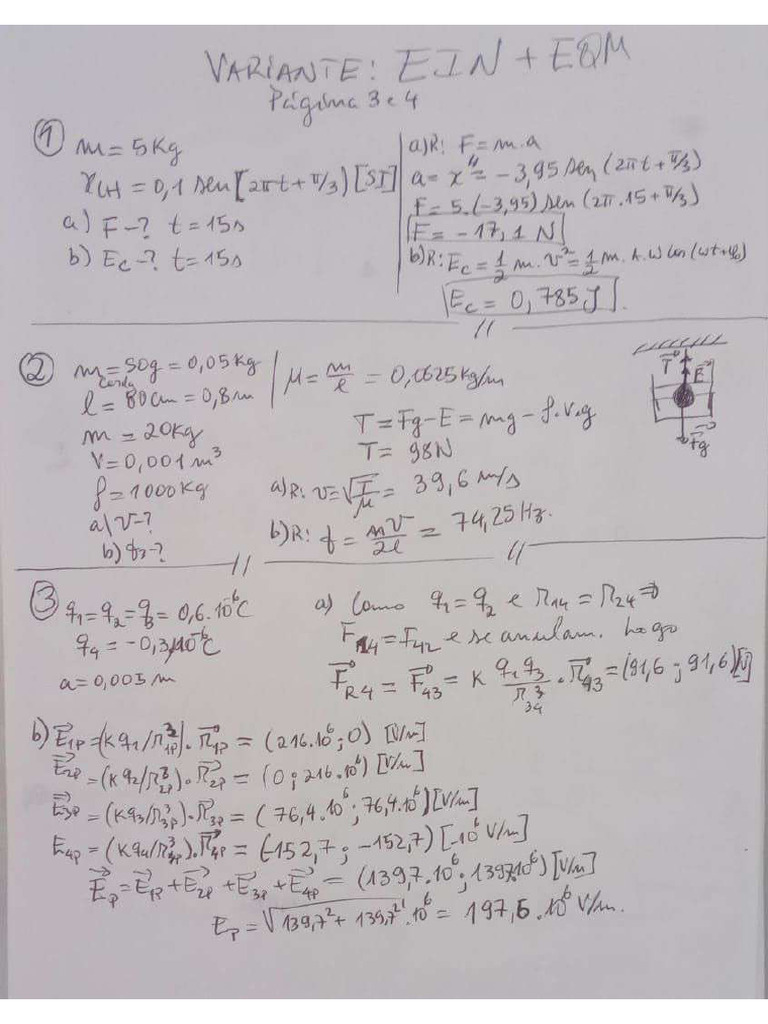 VARIANTE: EIN + EQM
Página 3 e 4
① m = 5Kg
x(t) = 0,1 sen[2πt + π/3) [SI]
a) F-? t = 15s
b) Ec-? t = 15s
a)R: F = m.a
a = x'' = -3,95 sen (2πt + π/3)
F = 5.(-3,95) sen (2π.15 + π/3)
F = -17,1 N
b)R: Ec = 1/2 m.v² = 1/2 m.A.W Cos (wt+φ0)
Ec = 0,785 J.
//
② m = 50g = 0,05Kg
corda
l = 80cm = 0,8m
m = 20kg
V = 0,001 m³
ρ = 1000Kg
a) v-?
b) f3-?
μ = m/l = 0,0625 Kg/m
T = Fg - E = mg - ρ.v.g
T = 98N
a)R: v = √T/μ = 39,6 m/s
b)R: f = nV/2l = 74,25 Hz.
T E
Fg
// //
③ q1 = q2 = q3 = 0,6.10⁻⁶C
q4 = -0,3.10⁻⁶C
a = 0,003 m
a) Como q1 = q2 e r14 = r24 ⇒
F14 = F42 e se anulam. Logo
F⃗R4 = F⃗43 = K q4q3/r³34 . r⃗43 = (91,6 ; 91,6) [N]
b) E⃗1P = (Kq1/r³1P). r⃗1P = (216.10⁶; 0) [V/m]
E⃗2P = (Kq2/r³2P). r⃗2P = (0; 216.10⁶) [V/m]
E⃗3P = (Kq3/r³3P). r⃗3P = (76,4.10⁶; 76,4.10⁶) [V/m]
E4P = (Kq4/r³4P). r⃗4P = (-152,7 ; -152,7) [.10⁶ V/m]
E⃗P = E⃗1P + E⃗2P + E⃗3P + E⃗4P = (139,7.10⁶; 139,7.10⁶) [V/m]
EP = √139,7² + 139,7² .10⁶ = 197,5.10⁶ V/m.